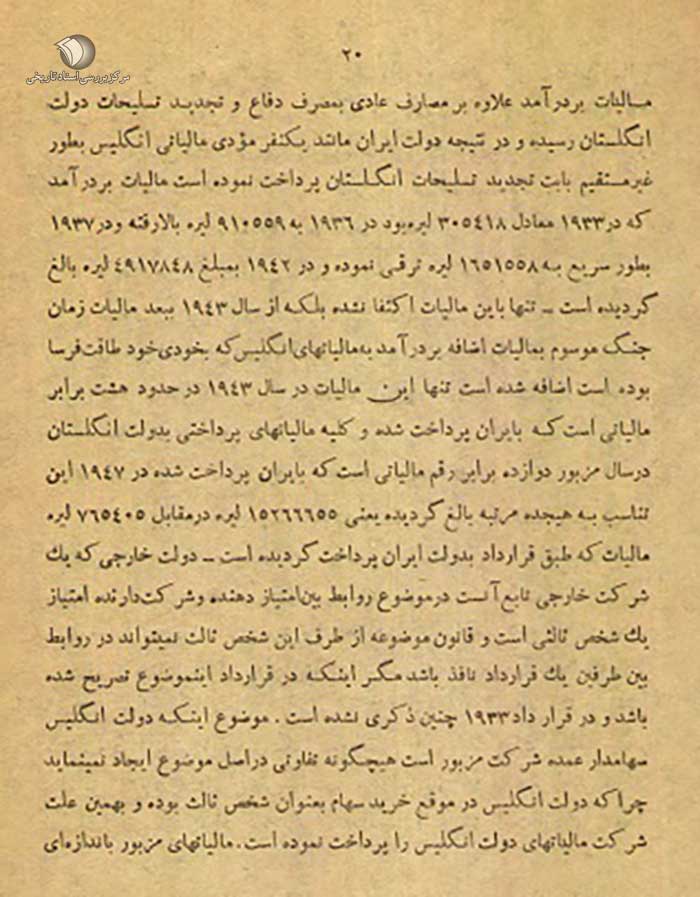 مرکز بررسی اسناد تاریخی
۲۰
مـالیات بردرآمد علاوه بر مصارف عادی بمصرف دفاع و تجدید تسلیحات دولت
انگلستان رسیده و در نتیجه دولت ایران مانند یکنفر مؤدی مالیاتی انگلیس بطور
غیرمستقیم بابت تجدید تسلیحات انگلستان پرداخت نموده است مالیات بردرآمد
که در ۱۹۳۳ معادل ۳۰۵٤۱۸ لیره بود در ۱۹۳۶ به ۹۱۰۵۵۹ لیره بالارفته ودر ۱۹۳۷
بطور سریع به ۱۶۵۱۵۵۸ لیره ترقی نموده و در ۱۹٤۲ بمبلغ ٤۹۱۷۸٤۸ لیره بالغ
گردیده است ـ تنها باین مالیات اکتفا نشده بلکه از سال ۱۹٤۳ ببعد مالیات زمان
جنگ موسوم بمالیات اضافه بردرآمد به مالیاتهای انگلیس که بخودی خود طاقت فرسا
بوده است اضافه شده است تنها این مالیات در سال ۱۹٤۳ در حدود هشت برابر
مالیاتی است که بایران پرداخت شده و کلیه مالیاتهای پرداختی بدولت انگلستان
درسال مزبور دوازده برابر رقم مالیاتی است که بایران پرداخت شده در ۱۹٤۷ این
تناسب به هیجده مرتبه بالغ گردیده یعنی ۱۵۲۶۶۶۵۵ لیره درمقابل ۷۶۵٤۰۵ لیره
مالیات که طبق قرارداد بدولت ایران پرداخت گردیده است ـ دولت خارجی که یك
شرکت خارجی تابع آنست درموضوع روابط بین امتیاز دهنده وشرکت دارنده امتیاز
یك شخص ثالثی است و قانون موضوعه از طرف این شخص ثالث نمیتواند در روابط
بین طرفین یك قرارداد نافذ باشد مگر اینکه در قرارداد اینموضوع تصریح شده
باشد و در قرار داد ۱۹۳۳ چنین ذکری نشده است . موضوع اینکه دولت انگلیس
سهامدار عمده شرکت مزبور است هیچگونه تفاوتی دراصل موضوع ایجاد نمینماید
چراکه دولت انگلیس در موقع خرید سهام بعنوان شخص ثالث بوده و بهمین علت
شرکت مالیاتهای دولت انگلیس را پرداخت نموده است. مالیاتهای مزبور باندازه‌ای